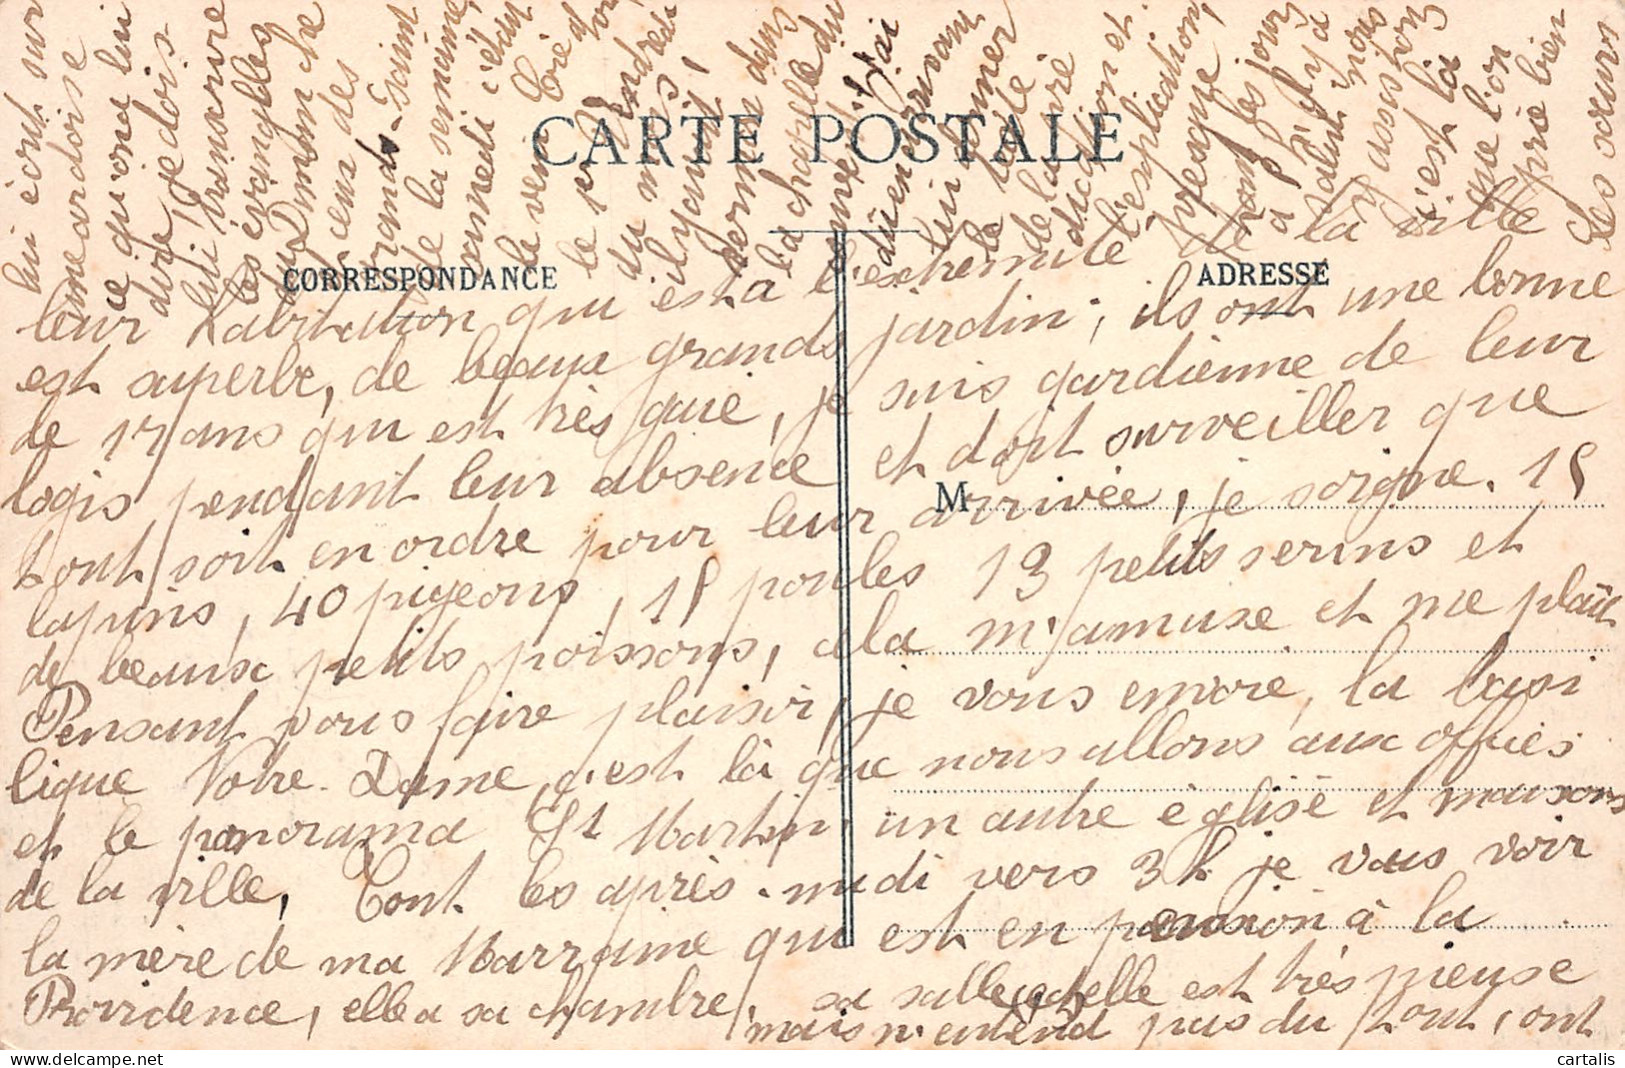 CARTE POSTALE
CORRESPONDANCE
ADRESSE
M
leur habitation qui est à l'extrémité de la ville
est superbe, de beaux grands jardin; ils ont une bonne
de 17 ans qui est très gaie, je suis gardienne de leur
logis pendant leur absence et doit surveiller que
tout soit en ordre pour leur arrivée, je soigne. 15
lapins, 40 pigeons, 15 poules 13 petits serins et
de beaux petits poissons, cela m'amuse et me plaît
Pensant vous faire plaisir, je vous envoie, la basi
lique Notre-Dame, c'est là que nous allons aux offices
et le panorama St Martin, un autre église et maisons
de la ville, Tout les après-midi vers 3 h je vous voir
la mère de ma Marraine qui est en pension à la
Providence, elle a sa chambre, sa salle, et elle est très pieuse
mais n'entend pas du tout, ont
lui écrit sur
une ardoise
ce qu'on a lui
dire, je dois
lui transcrire
les évangiles
du Dimanche
ceux des
grands-Saint
de la semaine,
samedi c'était
le ven
le 1er Vendredi
du mois,
il y avait
sermon dans
la chapelle du
j'ai
dû en arrivant
lui donner
le texte
de la vie
du chapitre et
l'explication,
presque
tous les jours
il y a
Salut,
nous
passons
c'est là
que l'on
prie bien
les sœurs
cartalis